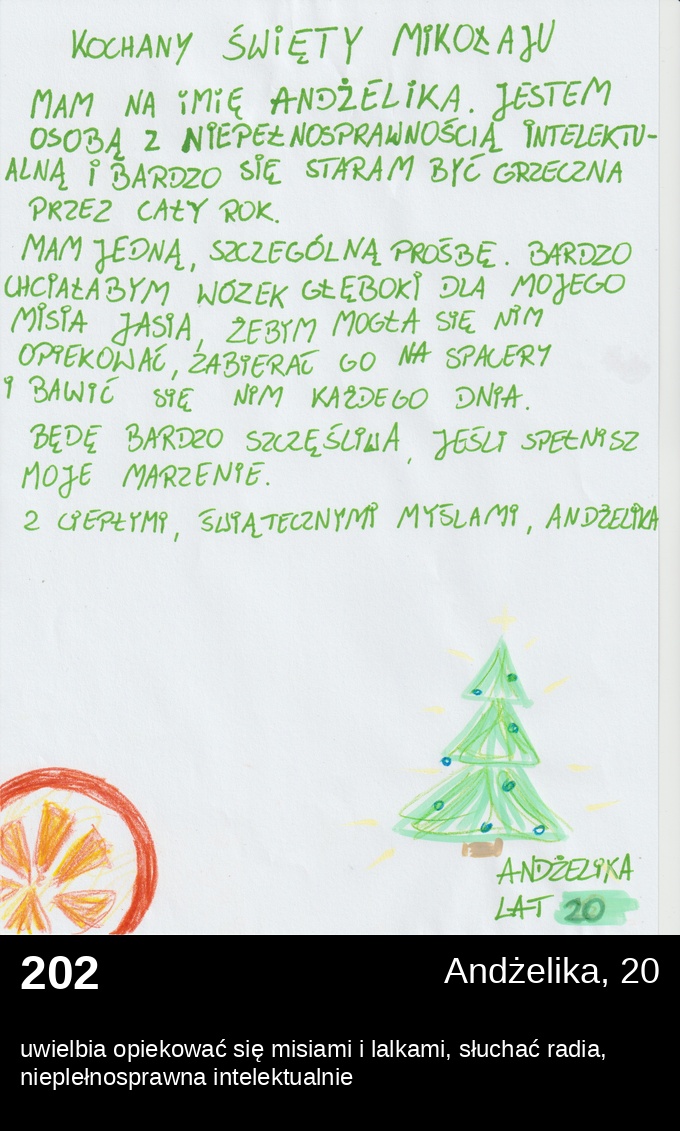 KOCHANY ŚWIĘTY MIKOŁAJU
MAM NA IMIĘ ANDŻELIKA. JESTEM
OSOBĄ Z NIEPEŁNOSPRAWNOŚCIĄ INTELEKTU-
ALNĄ I BARDZO SIĘ STARAM BYĆ GRZECZNA
PRZEZ CAŁY ROK.
MAM JEDNĄ, SZCZEGÓLNĄ PROŚBĘ. BARDZO
CHCIAŁABYM WÓZEK GŁĘBOKI DLA MOJEGO
MISIA JASIA, ŻEBYM MOGŁA SIĘ NIM
OPIEKOWAĆ, ZABIERAĆ GO NA SPACERY
I BAWIĆ SIĘ NIM KAŻDEGO DNIA.
BĘDĘ BARDZO SZCZĘŚLIWA, JEŚLI SPEŁNISZ
MOJE MARZENIE.
Z CIEPŁYMI, ŚWIĄTECZNYMI MYŚLAMI, ANDŻELIKA
ANDŻELIKA
LAT 20
202
Andżelika, 20
uwielbia opiekować się misiami i lalkami, słuchać radia,
nieplełnosprawna intelektualnie